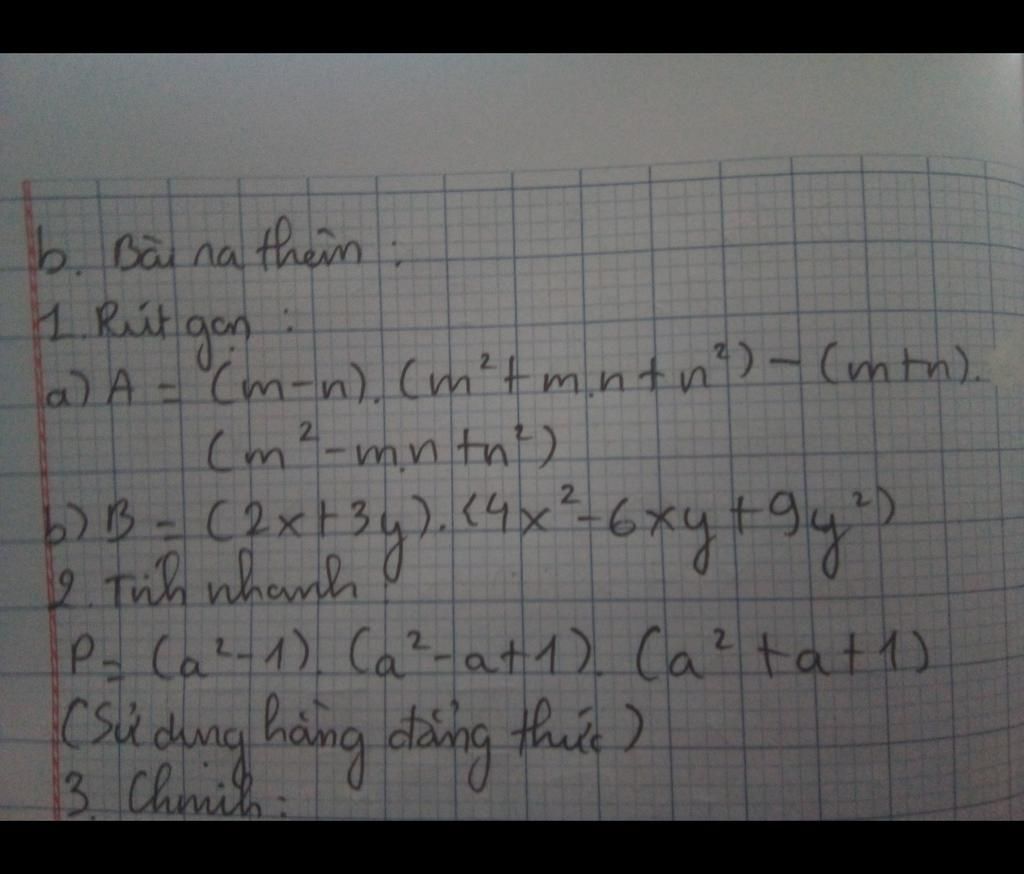 b. Bài ra thêm :
1. Rút gọn :
a) A = (m-n).(m²+m.n+n²)-(m+n).
(m²-m.n+n²)
b) B = (2x+3y).(4x²-6xy+9y²)
2. Tính nhanh
P= (a²-1).(a²-a+1).(a²+a+1)
(Sử dụng hằng đẳng thức)
3. Cminh: